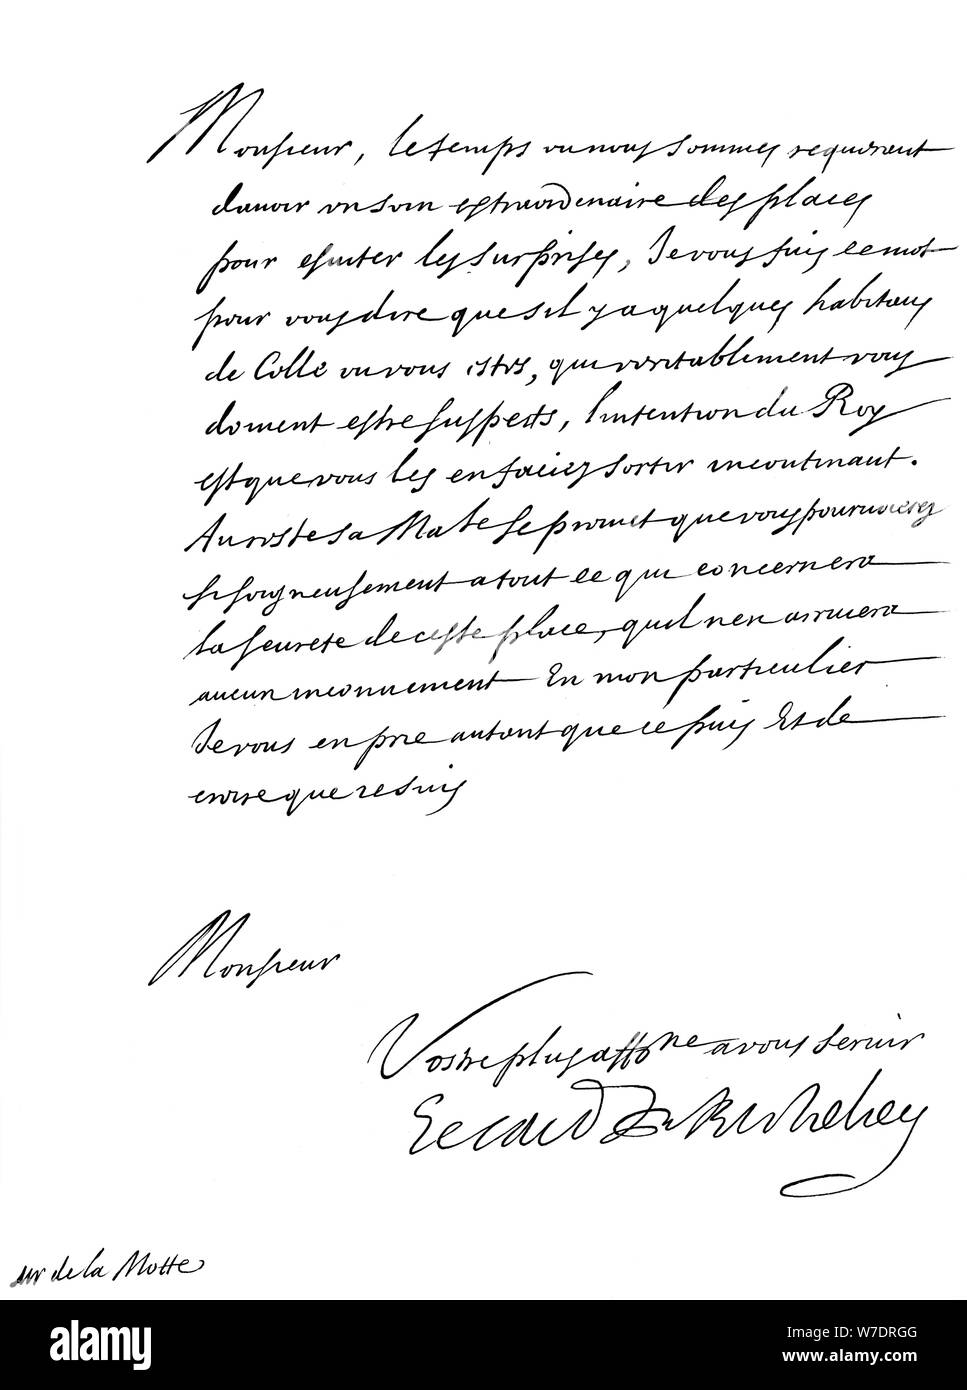 Monsieur, le temps ou nous sommes requerant
d'auoir vn soin extraordinaire des places
pour esuiter les surprises, Je vous fais ce mot
pour vous dire que s'il y a quelques habitans
de Colle ou vous estes, qui veritablement vous
doiuent estre suspects, l'intention du Roy
est que vous les en faciez sortir incontinant.
Au reste sa Mate se promet que vous pouruoierez
si soigneusement a tout ce qui concernera
la seurete de ceste place, qu'il n'en arriuera
aucun inconuenient En mon particulier
Je vous en prie autant que ie puis Et de
croire que ie suis
Monsieur
Vostre plus affone a vous seruir
Le Card de Richelieu
de la Motte
alamy
alamy
Image ID: W7DRGG
www.alamy.com